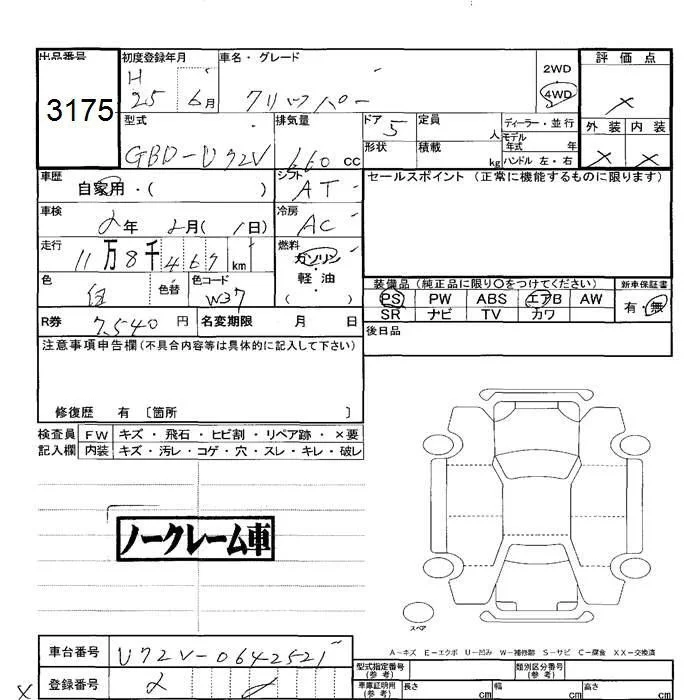 出品番号 初度登録年月 車名・グレード 評価点
3175 H 25 6月 クリッパー 2WD 4WD ×
型式 排気量 ドア 5 定員 人 ディーラー・並行 外装 内装
GBD-U72V 660 cc 形状 積載 kg モデル年式 年 ハンドル 左・右 × ×
車歴 自家用・( ) シフト AT セールスポイント (正常に機能するものに限ります)
車検 2年 2月( 1日) 冷房 AC
走行 11万8千467km 燃料 ガソリン・軽油 ( )
色 色替 色コード W37 装備品 (純正品に限り〇をつけてください) 新車保証書
PS PW ABS エアB AW 有・無
R券 7,540円 名変期限 月 日 SR ナビ TV カワ
注意事項申告欄(不具合内容等は具体的に記入して下さい) 後日品
修復歴 有 〔箇所 〕
検査員 FW キズ・飛石・ヒビ割・リペア跡・×要
記入欄 内装 キズ・汚レ・コゲ・穴・スレ・キレ・破レ
ノークレーム車
スペア
A-キズ E-エクボ U-凹み W-補修跡 S-サビ C-腐食 XX-交換済
車台番号 U72V-0642521 型式指定番号(参考) 類別区分番号(参考)
× 登録番号 2 車庫証明用(参考) 長さ cm 幅 cm 高さ cm